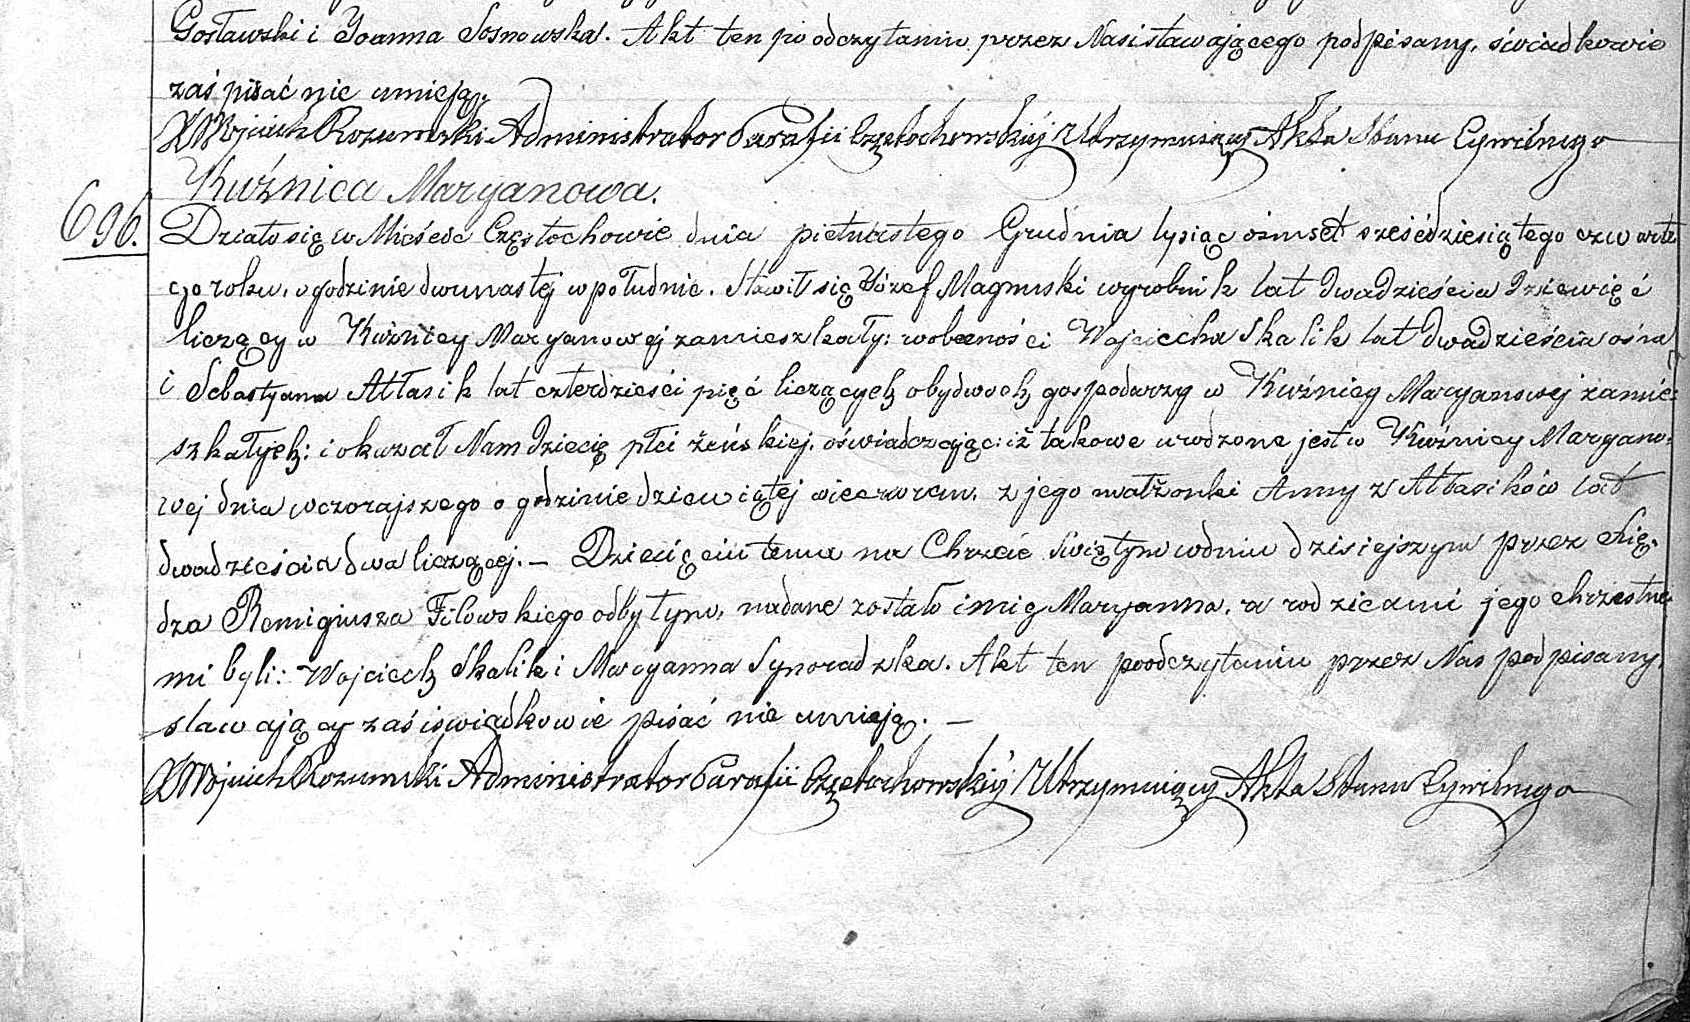 Gosławski i Joanna Sosnowska. Akt ten po odczytaniu przez Nas i stawającego podpisany, świadkowie
zaś pisać nie umieją.
X Wojciech Rozumski Administrator Parafii Częstochowskiéj Utrzymuiący Akta Stanu Cywilnego
Kuźnica Maryanowa.
696. Działo się w Mieście Częstochowie dnia pietnastego Grudnia tysiąc ośmset sześćdziesiątego czwarte
go roku, o godzinie dwunastej w południe. Stawił się Józef Magnuski wyrobnik lat dwadzieścia dziewięć
liczący w Kuźnicy Maryanowej zamieszkały: w obecności Wojciecha Skalik lat dwadzieścia ośm
i Sebastyana Atłasik lat czterdzieści pięć liczących obydwóch gospodarzy w Kuźnicy Maryanowej zamie:
szkałych: i okazał Nam dziecię płci żeńskiej, oświadczając: iż takowe urodzone jest w Kuźnicy Maryano:
wej dnia wczorajszego o godzinie dziewiątej wieczorem, z jego małżonki Anny z Atłasików lat
dwadzieścia dwa liczącej. — Dziecięciu temu na Chrzcie Świętym w dniu dzisiejszym przez Xię:
dza Remigiusza Filowskiego odbytym, nadane zostało imię Maryanna, a rodzicami jego chrzestne
mi byli: Wojciech Skalik i Maryanna Synoradzka. Akt ten po odczytaniu przez Nas podpisany,
stawający zaś i świadkowie pisać nie umieją. —
X Wojciech Rozumski Administrator Parafii Częstochowskiéj Utrzymuiący Akta Stanu Cywilnego